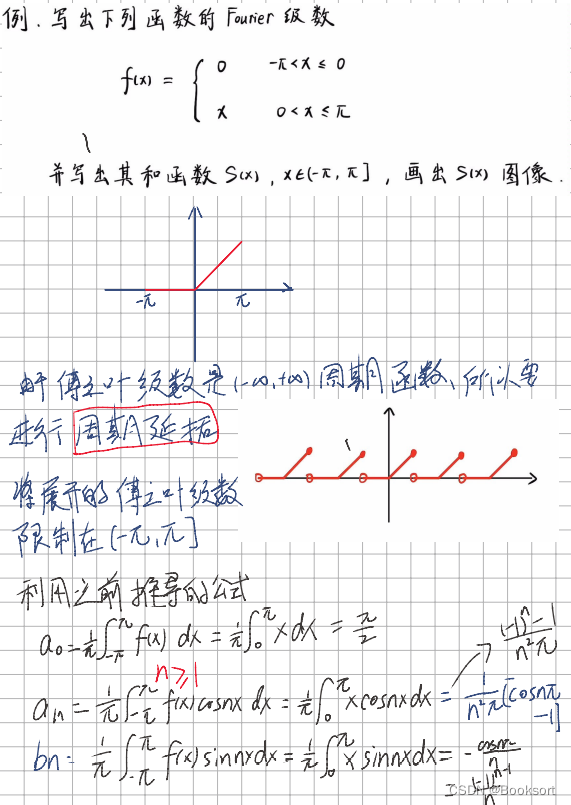 例. 写出下列函数的 Fourier 级数
f(x) = { 0  -π<x≤0
x  0<x≤π
并写出其和函数 S(x), x∈(-π, π], 画出 S(x) 图像.
-π  π
由于傅立叶级数是(-∞,+∞)周期函数,所以要
进行周期延拓
将展开的傅立叶级数
限制在(-π,π]
利用之前推导的公式
a₀ = 1/π ∫_{-π}^{π} f(x) dx = 1/π ∫_0^π x dx = π/2
n≥1
aₙ = 1/π ∫_{-π}^{π} f(x)cosnx dx = 1/π ∫_0^π x cosnx dx = 1/(n²π) [cosnπ -1]
((-1)ⁿ-1)/(n²π)
bₙ = 1/π ∫_{-π}^{π} f(x) sinnx dx = 1/π ∫_0^π x sinnx dx = - cosnπ/n
= (-1)ⁿ⁻¹/n
CSDN @Booksort